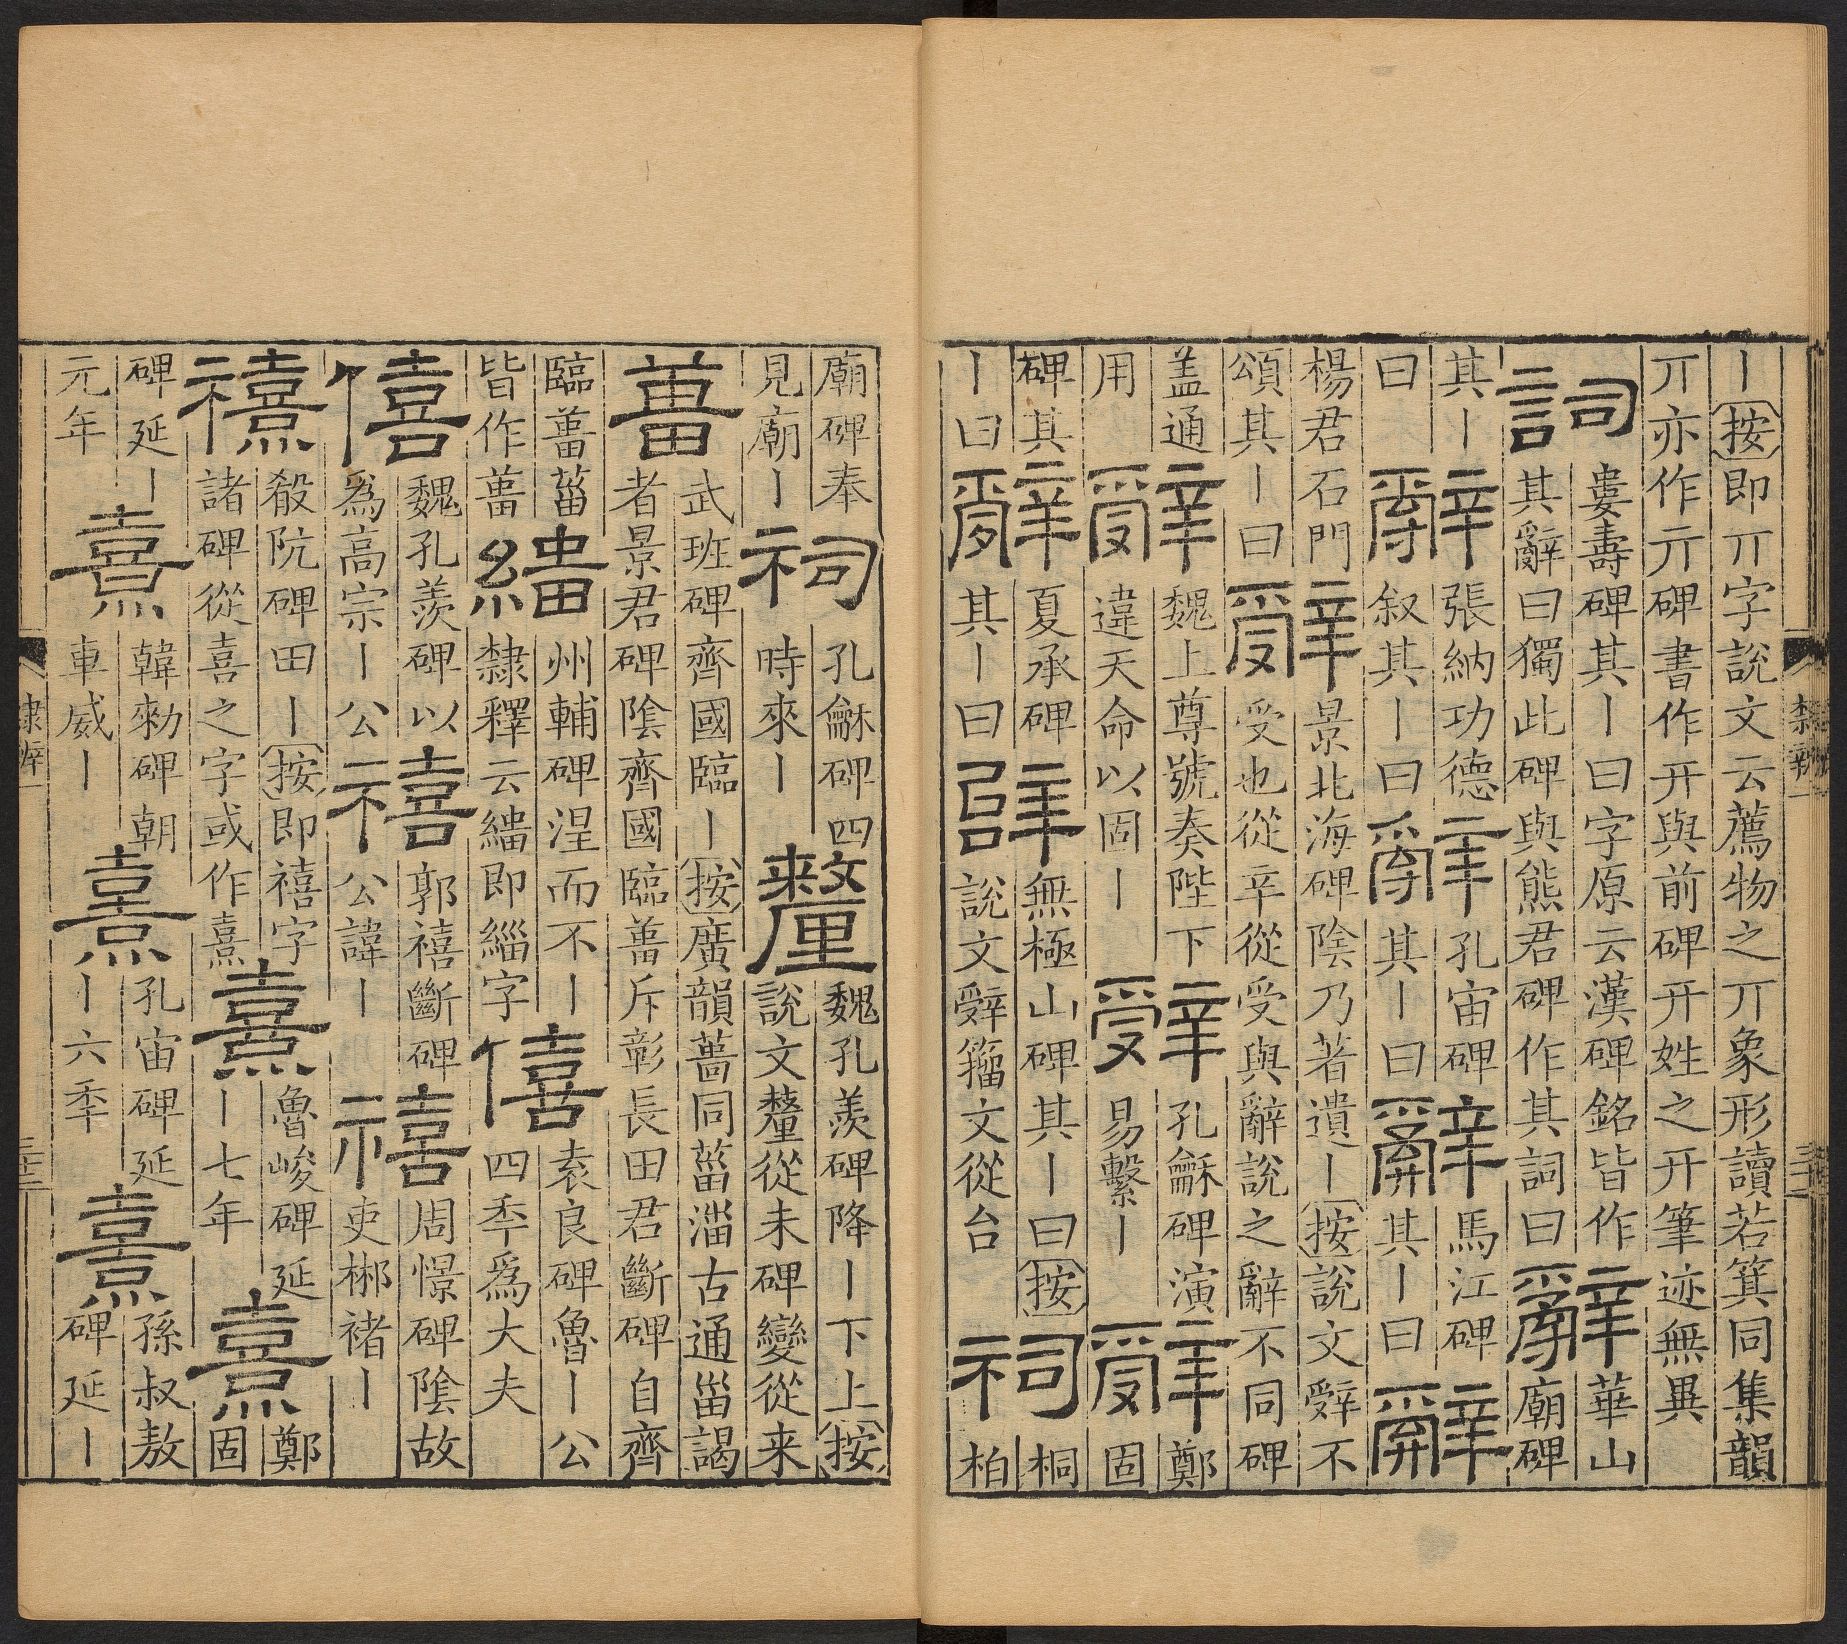 丨按即丌字說文云薦物之丌象形讀若箕同集韻
丌亦作亓碑書作开與前碑开姓之开筆迹無異
詞
婁壽碑其丨曰字原云漢碑銘皆作
其辭曰獨此碑與熊君碑作其詞曰
辭
華山
廟碑
其丨
曰
辭
張納功德
叙其丨曰
辭
孔宙碑
其丨曰
辭
馬江碑
其丨曰
辭
楊君石門
頌其丨曰
辤
景北海碑陰乃著遺丨按說文辤不
受也從辛從受與辭說之辭不同碑
盖通
用
辤
魏上尊號奏陛下
違天命以固丨
辤
孔龢碑演
易繫丨
辤
鄭
固
碑其
丨曰
辭
夏承碑
其丨曰
辝
無極山碑其丨曰按
說文辤籀文從台
祠
桐
柏
隸辨一
廟碑奉
見廟丨
祠
孔龢碑四
時來丨
釐
魏孔羨碑降丨下上按
說文釐從未碑變從来
葘
武班碑齊國臨丨按廣韻葘同菑淄古通甾謁
者景君碑陰齊國臨葘斥彰長田君斷碑自齊
臨葘菑
皆作葘
繬
州輔碑涅而不丨
隸釋云繬即緇字
僖
袁良碑魯丨公
四秊爲大夫
僖
魏孔羨碑以
爲高宗丨公
禧
郭禧斷碑
公諱丨
禧
周憬碑陰故
吏郴禇丨
禧
殽阬碑田丨按即禧字
諸碑從喜之字或作熹
熹
魯峻碑延
丨七年
熹
鄭
固
碑延丨
元年
熹
韓勑碑朝
車威丨
熹
孔宙碑延
丨六秊
熹
孫叔敖
碑延丨
隸辨一